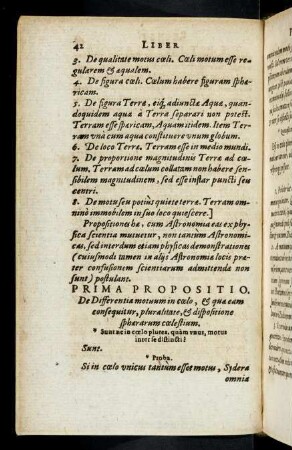 42 LIBER
3. De qualitate motus cœli. Cœli motum esse re
gularem & æqualem.
4. De figura cœli. Cœlum habere figuram sphæ
ricam.
5. De figura Terræ, eiq́, adiunctæ Aquæ, quan-
doquidem aqua à Terra separari non potest.
Terram esse sphæricam, Aquam itidem. Item Ter-
ram vnà cum aqua constituere vnum globum.
6. De loco Terræ. Terram esse in medio mundi.
7. De proportione magnitudinis Terræ ad cœ-
lum, Terram ad cœlum collatam non habere sen-
sibilem magnitudinem, sed esse instar puncti seu
centri.
8. De motu seu potiùs quiete terræ. Terram om-
ninò immobilem in suo loco quiescere.]
Propositiones hæ, cum Astronomia eas ex physi-
ca scientia mutuetur, non tantùm Astronomi-
cas, sed interdum etiam physicas demonstrationes
(cuiusmodi tamen in alijs Astronomiæ locis præ-
ter confusionem scientiarum admittenda non
sunt) postulant.
PRIMA PROPOSITIO.
De Differentia motuum in cœlo, & quæ eam
consequitur, pluralitate, & dispositione
sphærarum cœlestium.
* Sunt ne in cœlo plures, quàm vnus, motus
inter se distincti?
Sunt.
* Proba.
Si in cœlo vnicus tantùm esset motus, Sydera
omnia